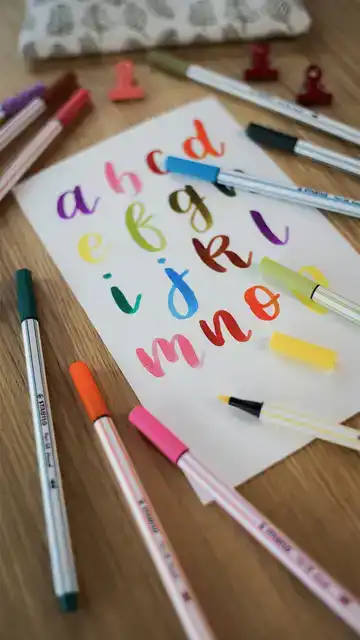 a b c d
e f g
i j k l
m n o
STABILO
STABILO
STABILO
STABILO